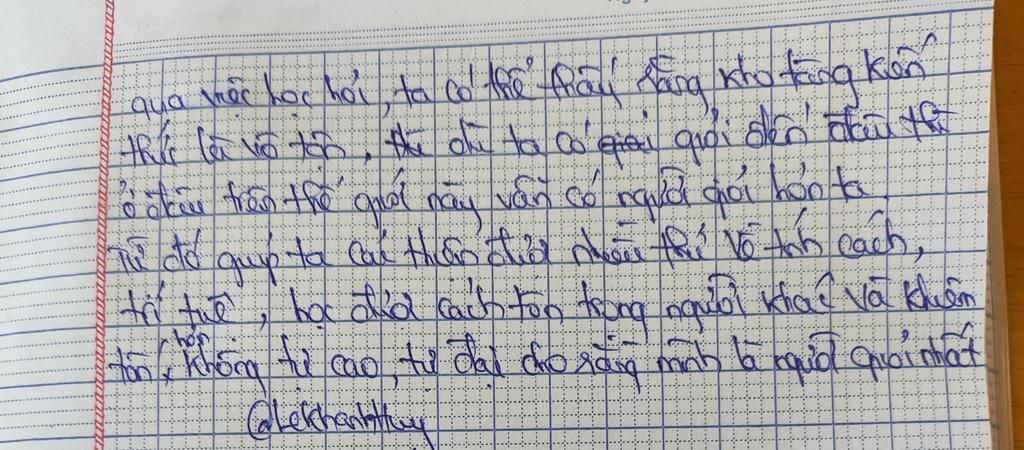 qua việc học hỏi, ta có thể thấy rằng kho tàng kiến
thức là vô tận, thì dù ta có giỏi đến đâu thì
ở đâu trên thế giới này vẫn có người giỏi hơn ta
Từ đó giúp ta cải thiện được nhiều thứ về tính cách,
trí tuệ, học được cách tôn trọng người khác và khiêm
tốn hơn, không tự cao, tự đại cho rằng mình là người giỏi nhất
@lekhanhHuy